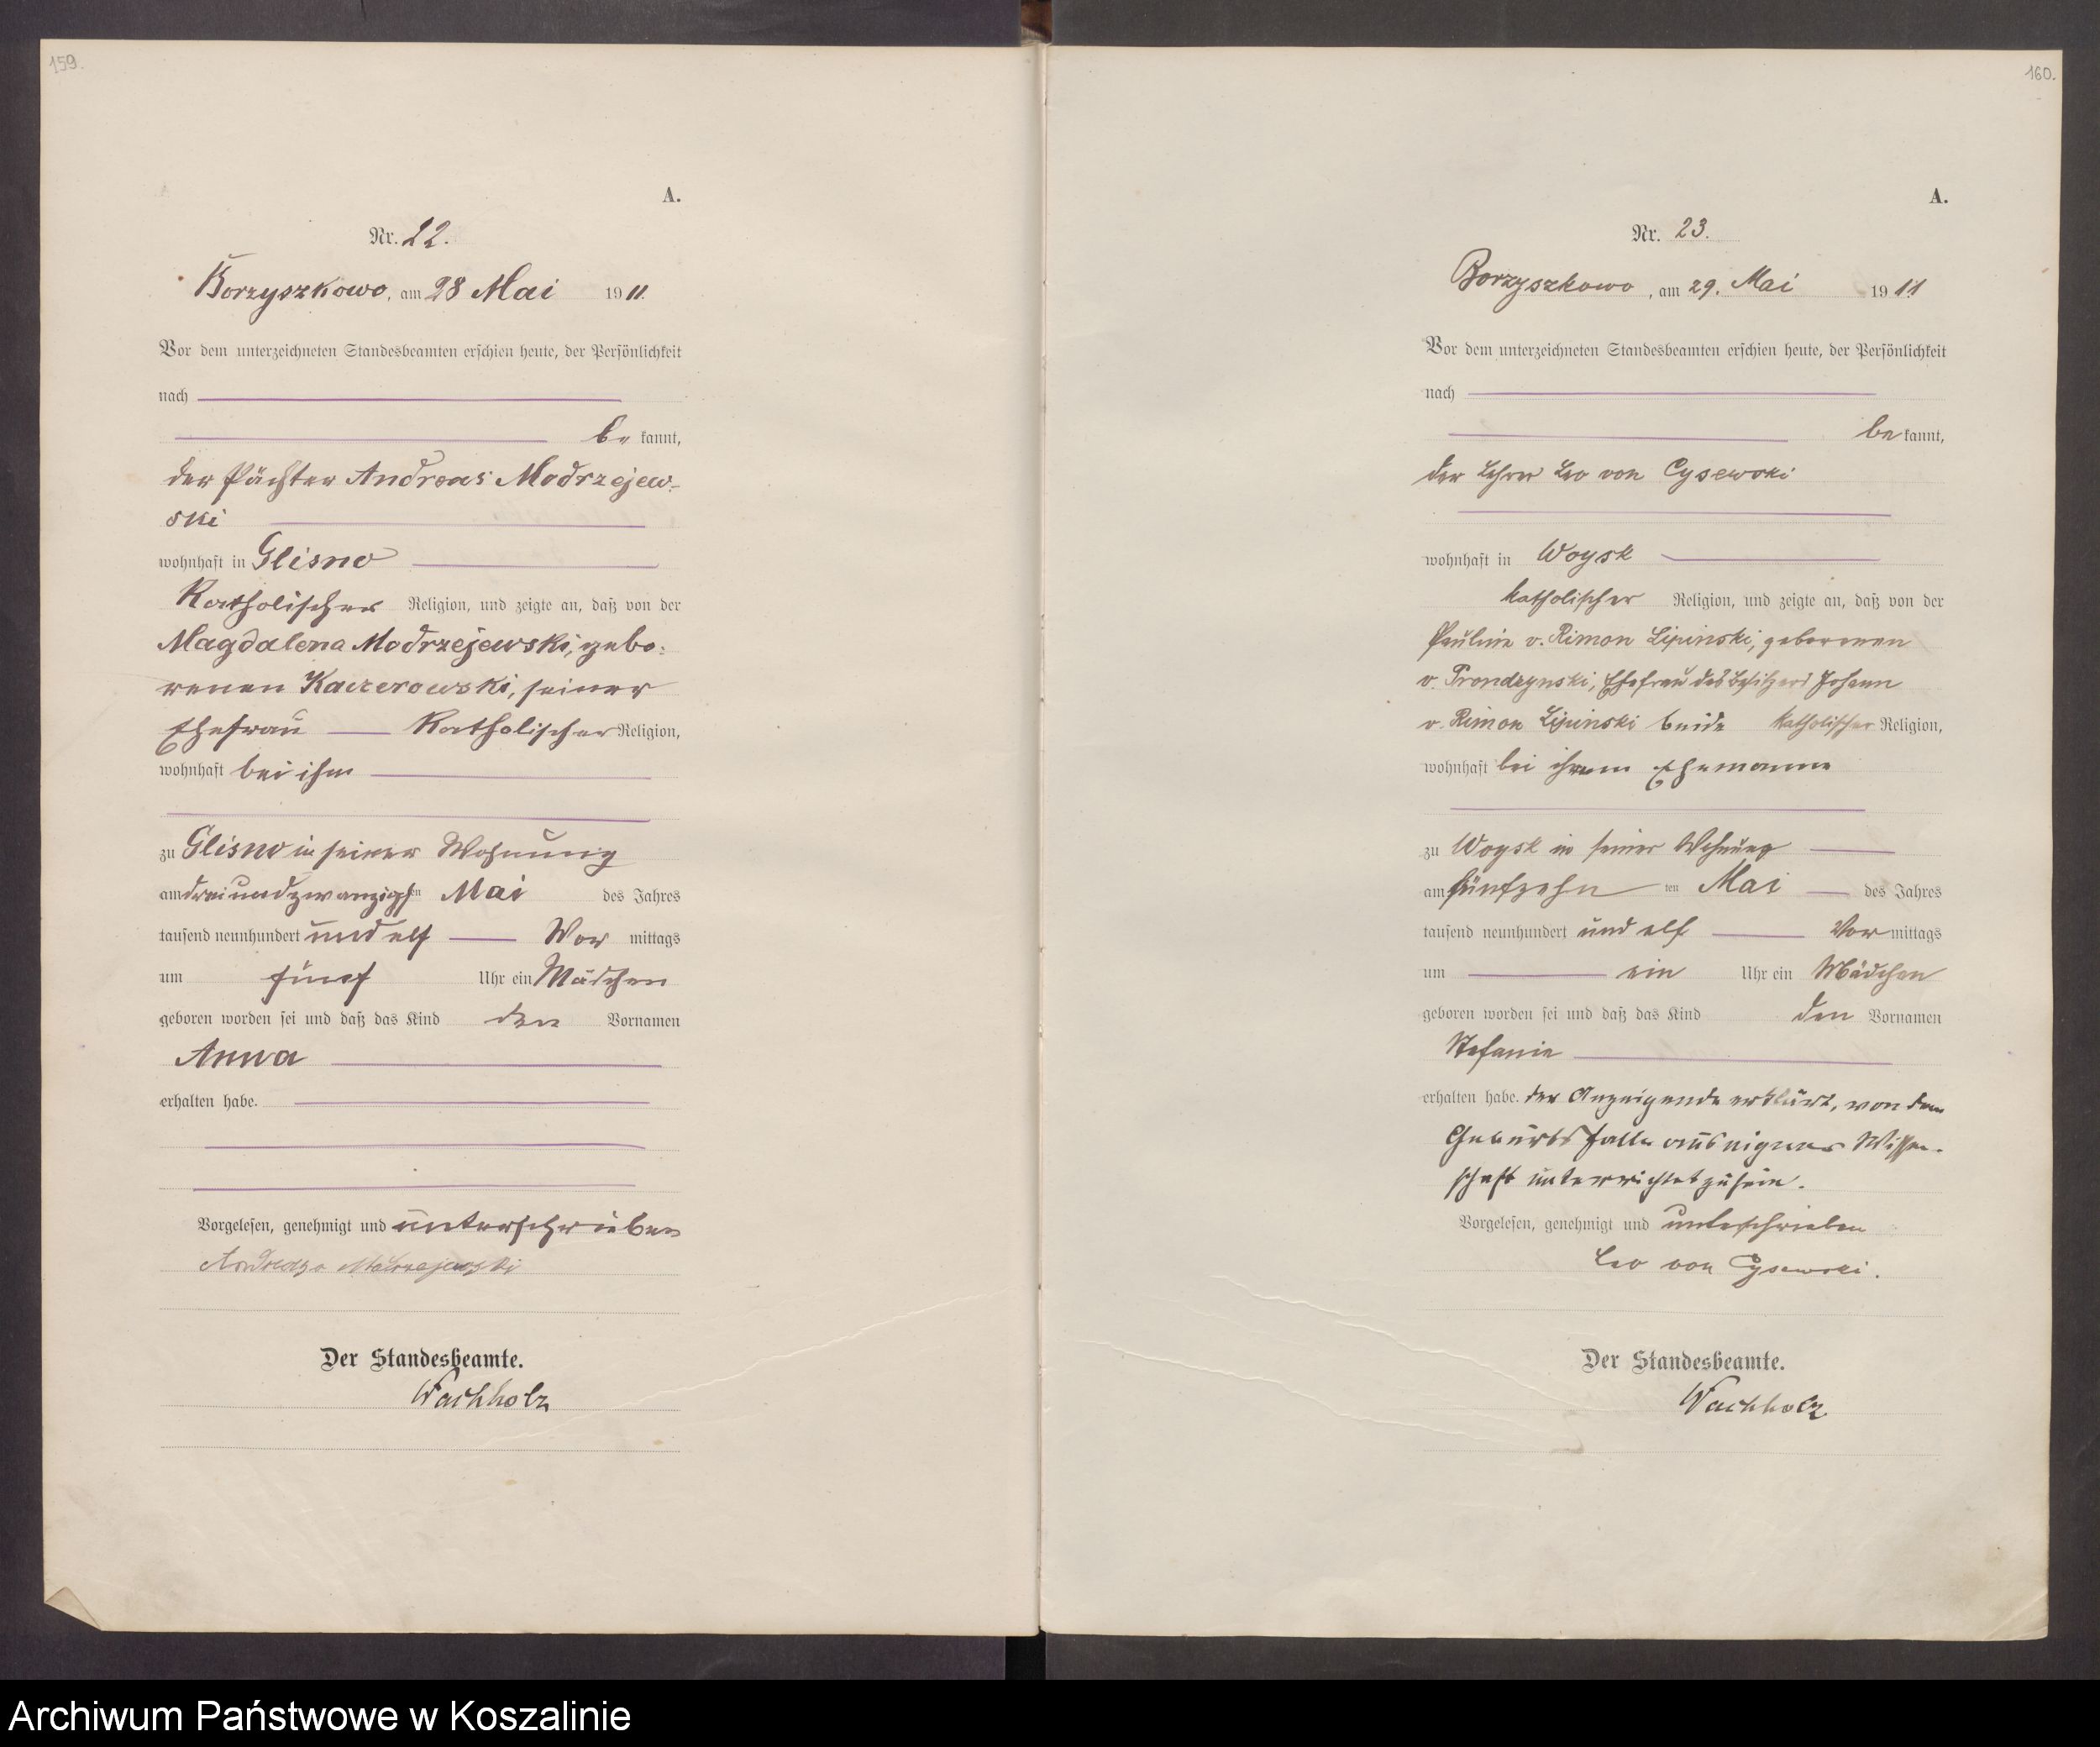 159.
A.
Nr. 22.
Borzyszkowo, am 28 Mai 1911.
Vor dem unterzeichneten Standesbeamten erschien heute, der Persönlichkeit
nach
be kannt,
der Pächter Andreas Modrzejew-
ski
wohnhaft in Glisno
Katholischer Religion, und zeigte an, daß von der
Magdalena Modrzejewski, gebo-
renen Kaczerowski, seiner
Ehefrau Katholischer Religion,
wohnhaft bei ihm
zu Glisno in seiner Wohnung
am dreiundzwanzigsten Mai des Jahres
tausend neunhundert und elf Vor mittags
um fünf Uhr ein Mädchen
geboren worden sei und daß das Kind den Vornamen
Anna
erhalten habe.
Vorgelesen, genehmigt und unterschrieben
Modrzejewski
Der Standesbeamte.
Wachholz
160.
A.
Nr. 23.
Borzyszkowo, am 29. Mai 1911
Vor dem unterzeichneten Standesbeamten erschien heute, der Persönlichkeit
nach
be kannt,
der Lehrer Leo von Cysewski
wohnhaft in Woysk
katholischer Religion, und zeigte an, daß von der
Pauline v. Rimon Lipinski, geborenen
v. Prondzynski, Ehefrau des Besitzers Johann
v. Rimon Lipinski beide katholischer Religion,
wohnhaft bei ihrem Ehemanne
zu Woysk in seiner Wohnung
am fünfzehn ten Mai des Jahres
tausend neunhundert und elf Vor mittags
um ein Uhr ein Mädchen
geboren worden sei und daß das Kind den Vornamen
Stefanie
erhalten habe. der Anzeigende erklärt, von dem
Geburtsfalle aus eigner Wissen-
schaft unterrichtet zu sein.
Vorgelesen, genehmigt und unterschrieben
Leo von Cysewski.
Der Standesbeamte.
Wachholz
Archiwum Państwowe w Koszalinie